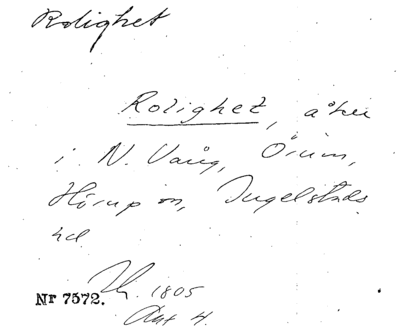 Rolighet
Rolighet, åker
i N. Vång, Örum,
Hörup sn, Ingelstads
hd
1805
Nr 7572.
Akt 4.